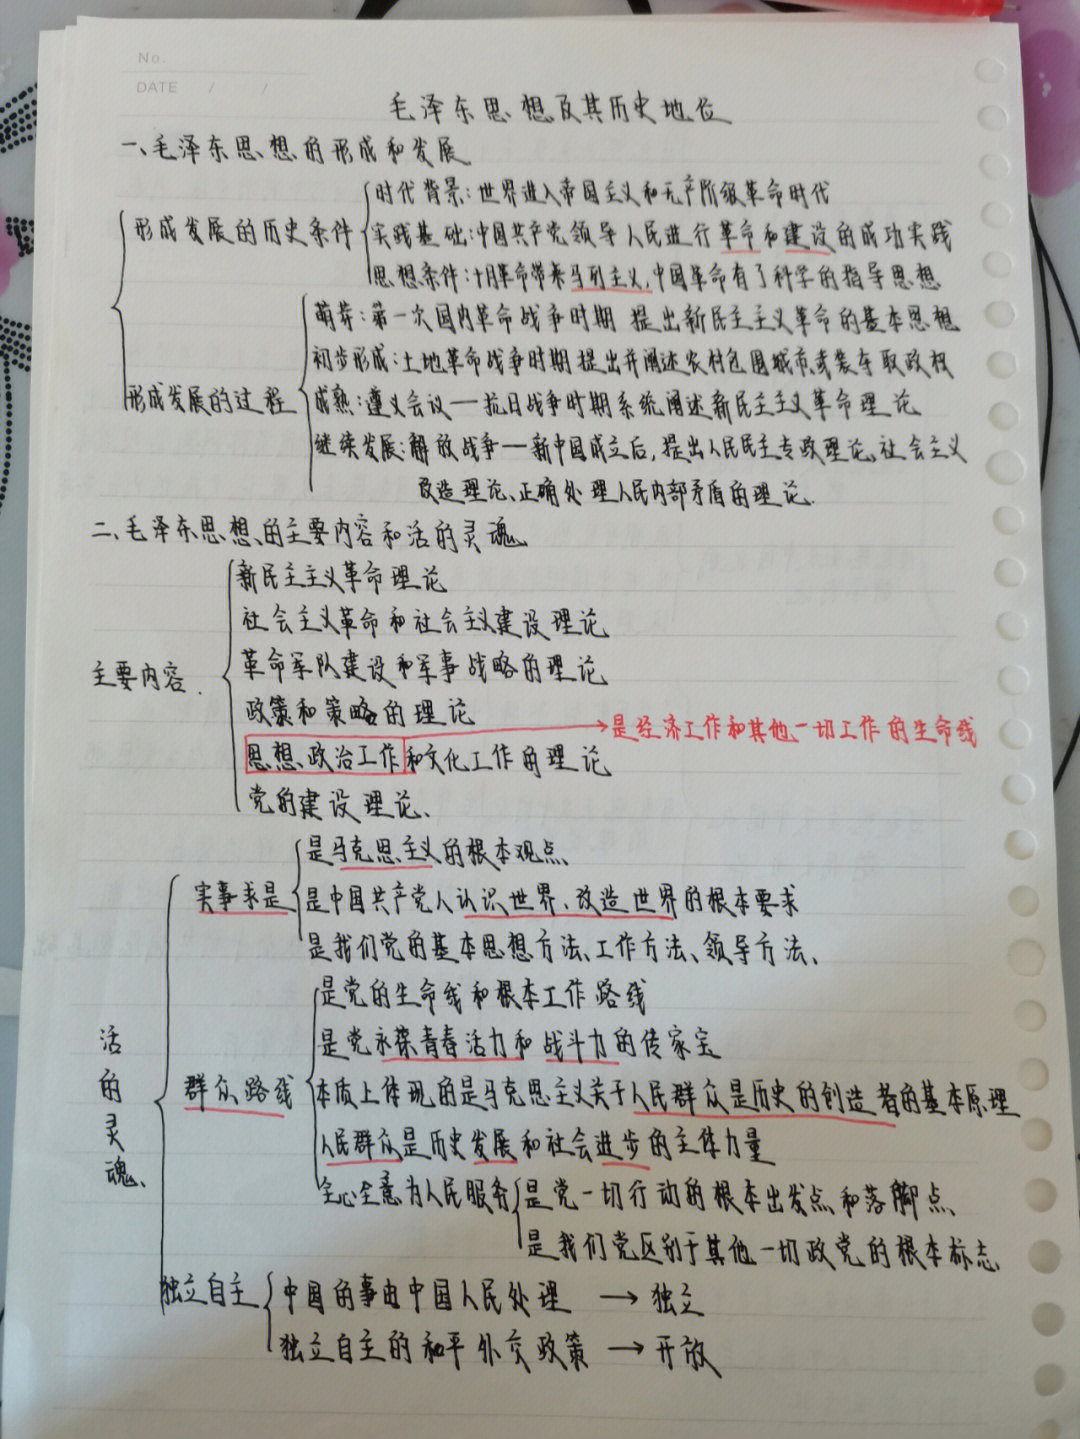 No.
DATE / /
毛泽东思想及其历史地位
一、毛泽东思想的形成和发展
形成发展的历史条件
时代背景:世界进入帝国主义和无产阶级革命时代
实践基础:中国共产党领导人民进行革命和建设的成功实践
思想条件:十月革命带来马列主义,中国革命有了科学的指导思想
形成发展的过程
萌芽:第一次国内革命战争时期 提出新民主主义革命的基本思想
初步形成:土地革命战争时期 提出并阐述农村包围城市,武装夺取政权
成熟:遵义会议——抗日战争时期 系统阐述新民主主义革命理论
继续发展:解放战争——新中国成立后,提出人民民主专政理论、社会主义
改造理论、正确处理人民内部矛盾的理论.
二、毛泽东思想的主要内容和活的灵魂
主要内容.
新民主主义革命理论
社会主义革命和社会主义建设理论
革命军队建设和军事战略的理论
政策和策略的理论
思想政治工作和文化工作的理论
→是经济工作和其他一切工作的生命线
党的建设理论、
活的灵魂、
实事求是
是马克思主义的根本观点、
是中国共产党人认识世界、改造世界的根本要求
是我们党的基本思想方法、工作方法、领导方法、
群众路线
是党的生命线和根本工作路线
是党永葆青春活力和战斗力的传家宝
本质上体现的是马克思主义关于人民群众是历史的创造者的基本原理
人民群众是历史发展和社会进步的主体力量
全心全意为人民服务
是党一切行动的根本出发点和落脚点、
是我们党区别于其他一切政党的根本标志
独立自主
中国的事由中国人民处理 → 独立
独立自主的和平外交政策 → 开放